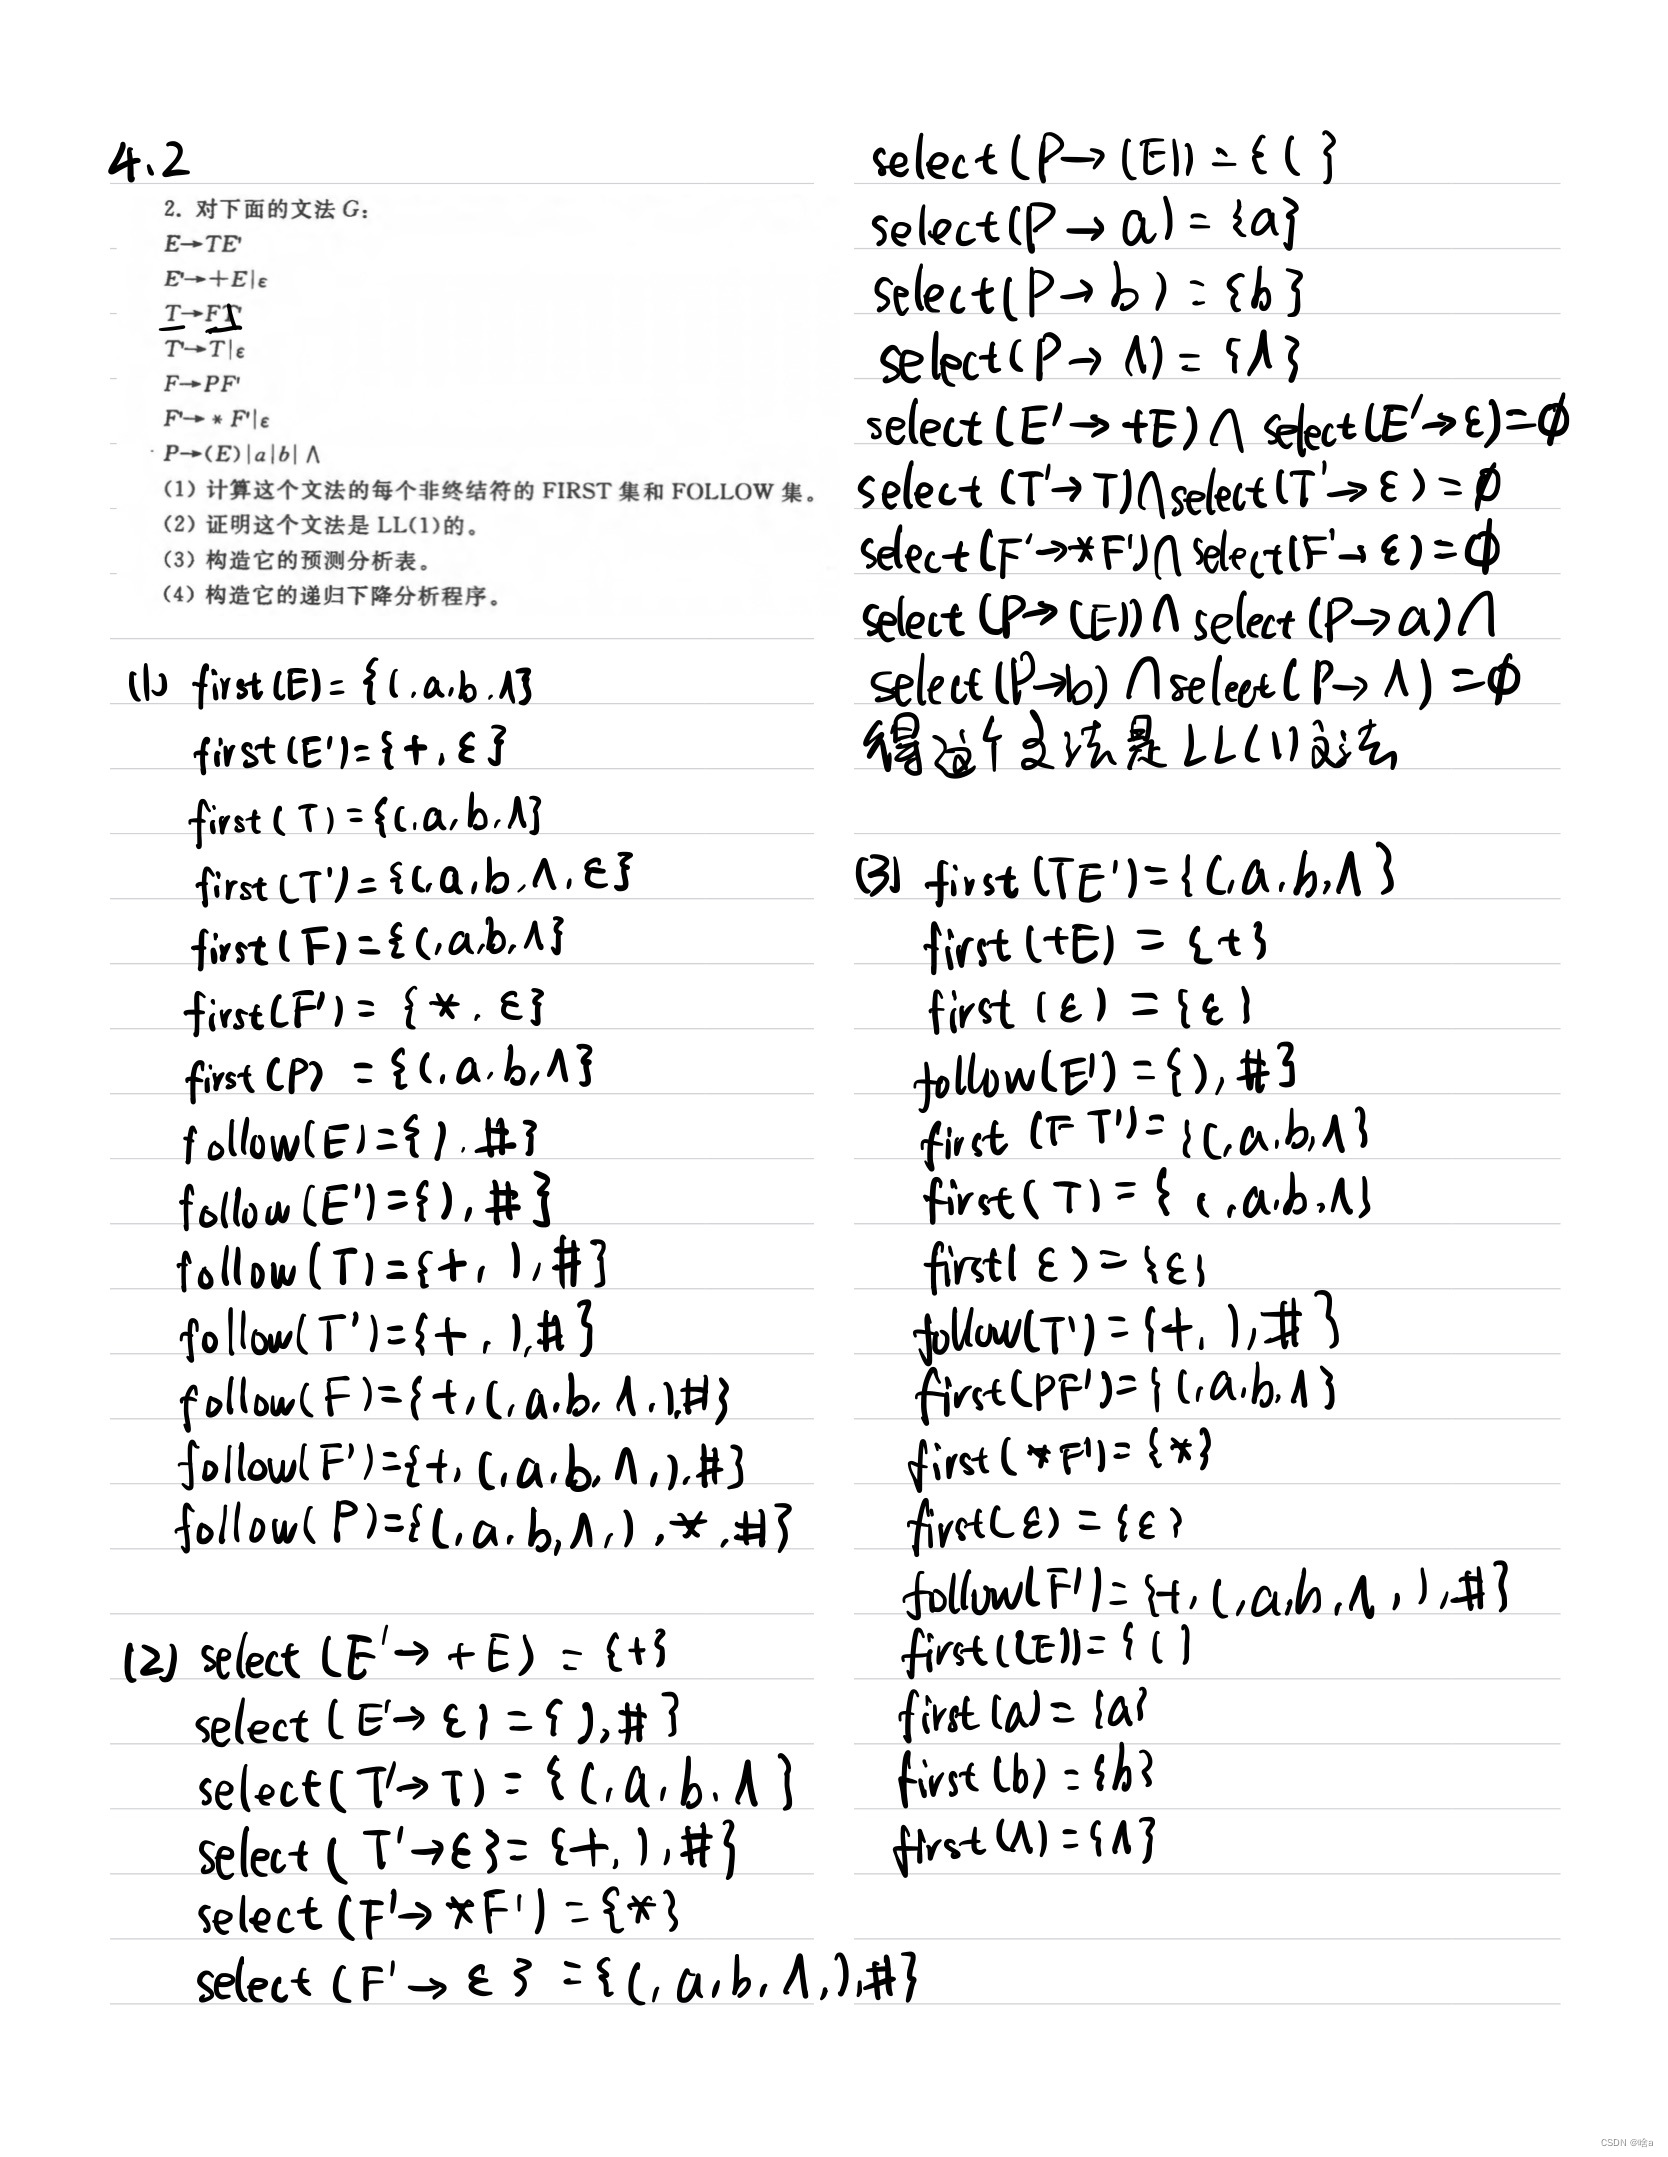 4.2
2. 对下面的文法 G:
E→TE'
E'→+E|ε
T→FT'
T'→T|ε
F→PF'
F'→*F'|ε
P→(E)|a|b|∧
(1) 计算这个文法的每个非终结符的 FIRST 集和 FOLLOW 集。
(2) 证明这个文法是 LL(1)的。
(3) 构造它的预测分析表。
(4) 构造它的递归下降分析程序。
(1) first(E)={(,a,b,∧}
first(E')={+,ε}
first(T)={(,a,b,∧}
first(T')={(,a,b,∧,ε}
first(F)={(,a,b,∧}
first(F')={*,ε}
first(P)={(,a,b,∧}
follow(E)={),#}
follow(E')={),#}
follow(T)={+,),#}
follow(T')={+,),#}
follow(F)={+,(,a,b,∧,),#}
follow(F')={+,(,a,b,∧,),#}
follow(P)={(,a,b,∧,),*,#}
(2) select(E'→+E)={+}
select(E'→ε)={),#}
select(T'→T)={(,a,b,∧}
select(T'→ε}={+,),#}
select(F'→*F')={*}
select(F'→ε}={(,a,b,∧,),#}
select(P→(E))={(}
select(P→a)={a}
select(P→b)={b}
select(P→∧)={∧}
select(E'→+E)∩select(E'→ε)=ϕ
select(T'→T)∩select(T'→ε)=ϕ
select(F'→*F')∩select(F'→ε)=ϕ
select(P→(E))∩select(P→a)∩
select(P→b)∩select(P→∧)=ϕ
得这个文法是LL(1)文法
(3) first(TE')={(,a,b,∧}
first(+E)={+}
first(ε)={ε}
follow(E')={),#}
first(FT')={(,a,b,∧}
first(T)={(,a,b,∧}
first(ε)={ε}
follow(T')={+,),#}
first(PF')={(,a,b,∧}
first(*F')={*}
first(ε)={ε}
follow(F')={+,(,a,b,∧,),#}
first((E))={(}
first(a)={a}
first(b)={b}
first(∧)={∧}
CSDN @啥a